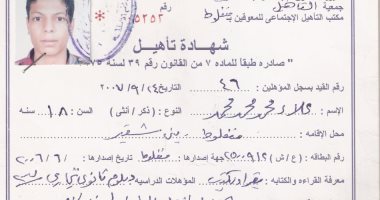 جمعية التأهيل
مكتب التأهيل الإجتماعى للمعوقين بـ منفلوط
رقم
* ٥٢٥٣
شهادة تأهيل
" صادره طبقا للماده ٧ من القانون رقم ٣٩ لسنة ٧٥
رقم القيد بسجل المؤهلين ٤٦ بتاريخ ٢٤ / ٩ / ٢٠٠٧
الإسم : علاء محمد محمد محمد النوع : ( ذكر / أنثى ) السن : ١٨ سنه
محل الاقامه : منفلوط - بنى شقير
رقم البطاقه : (ع / ش) جهة إصدارها : منفلوط تاريخ إصدارها : ٢٠٠٦ / ٦ /
معرفة القراءه والكتابه : يقرأ ويكتب المؤهلات الدراسيه : دبلوم ثانوى تجارى